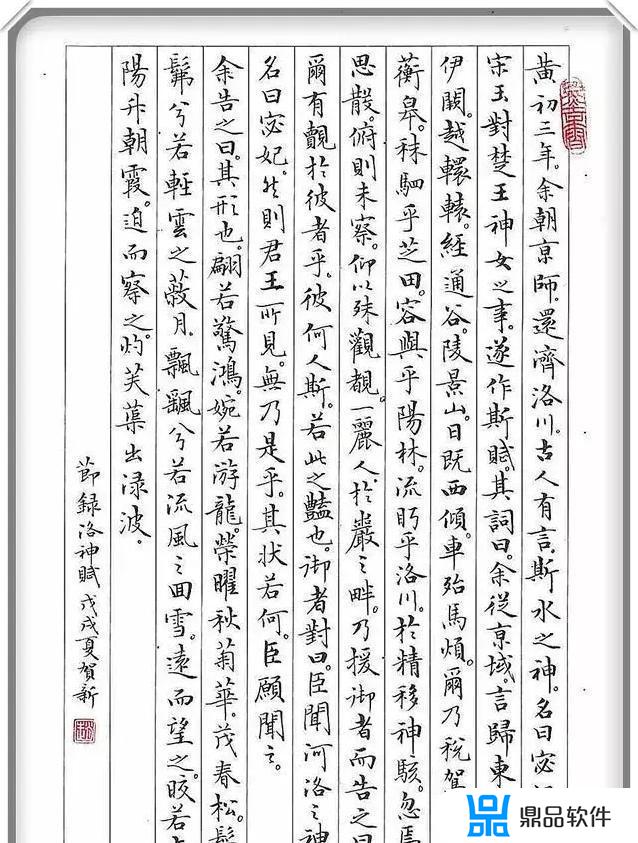 黄初三年。余朝京師。還濟洛川。古人有言。斯水之神。名曰宓
宋玉對楚王神女之事。遂作斯賦。其詞曰。余從京域言歸東
伊闕。越轘轅。經通谷。陵景山。日既西傾。車殆馬煩。爾乃稅駕
蘅皋。秣駟乎芝田。容與乎陽林。流眄乎洛川。於精移神駭。忽焉
思散。俯則未察。仰以殊觀。覩一麗人於巖之畔。乃援御者而告之曰
爾有覿於彼者乎。彼何人斯。若此之豔也。御者對曰。臣聞河洛之神
名曰宓妃。然則君王所見。無乃是乎。其狀若何。臣願聞之。
余告之曰。其形也。翩若驚鴻。婉若游龍。榮曜秋菊。華茂春松。髣
髴兮若輕雲之蔽月。飄颻兮若流風之回雪。遠而望之。皎若太
陽升朝霞。迫而察之。灼芙蕖出淥波。
節録洛神賦 戊戌夏賀新
鼎品软件